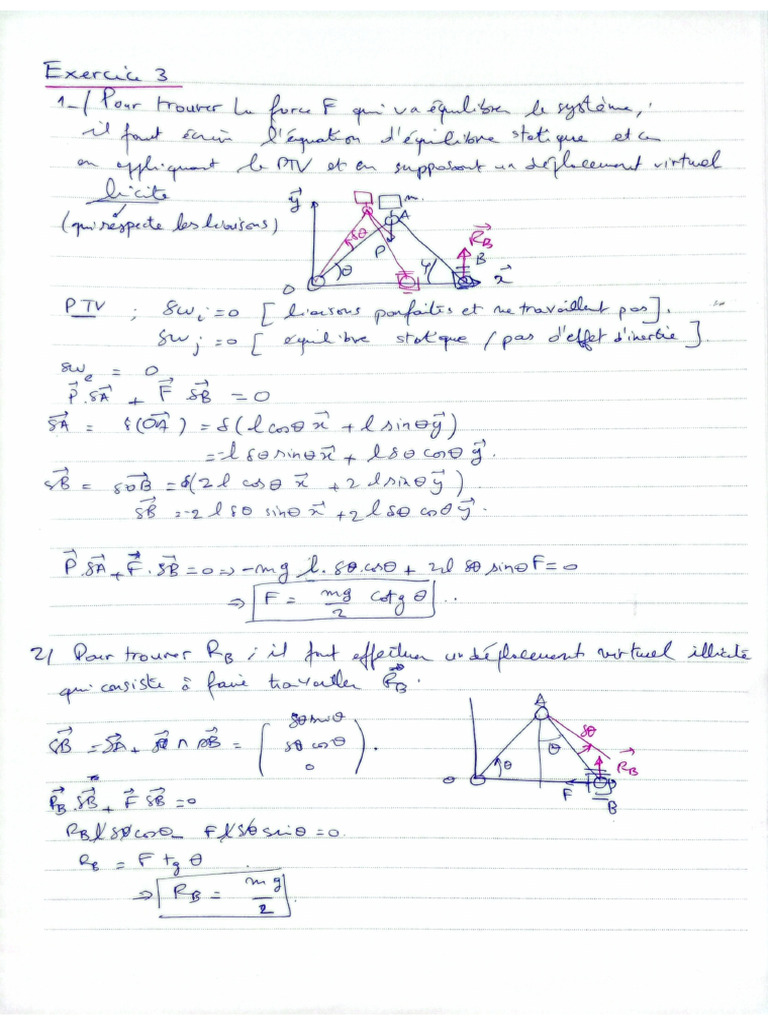 Exercice 3
1-/ Pour trouver la force F qui va équilibrer le système,
il faut écrire l'équation d'équilibre statique et ce
en appliquant le PTV et en supposant un déplacement virtuel
licite
(qui respecte les liaisons)
y⃗ m. A R⃗_B
δθ P B
θ φ x⃗
O
PTV ; δw_i = 0 [liaisons parfaites et ne travaillent pas].
δw_j = 0 [équilibre statique / pas d'effet d'inertie].
δw_e = 0
P⃗.δA⃗ + F⃗ δB⃗ = 0
δA⃗ = δ(OA⃗) = δ(l cosθ x⃗ + l sinθ y⃗)
= -l δθ sinθ x⃗ + l δθ cosθ y⃗.
δB⃗ = δOB⃗ = δ(2 l cosθ x⃗ + 2 l sinθ y⃗)
δB⃗ = -2 l δθ sinθ x⃗ + 2 l δθ cosθ y⃗.
P⃗.δA⃗ + F⃗.δB⃗ = 0 ⇒ -mg l.δθ.cosθ + 2l δθ sinθ F = 0
⇒ F = mg/2 cotg θ ..
2/ Pour trouver R_B ; il faut effectuer un déplacement virtuel illicite
qui consiste à faire travailler R⃗_B.
A
δθ
θ R⃗_B
O θ F⃗ B
δB⃗ = δA⃗ + δθ⃗ ∧ AB⃗ = ( δθ sinθ
δθ cosθ
0 ).
R⃗_B.δB⃗ + F⃗ δB⃗ = 0
R_B l δθ cosθ - F l δθ sinθ = 0.
R_B = F tg θ
⇒ R_B = mg/2